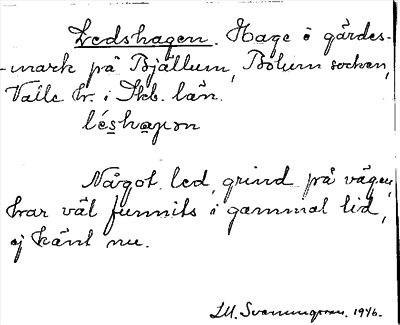 Ledshagen. Hage i gärdes-
-mark på Bjällum, Bolum socken,
Valle hr. i Skb. län.
léshaɡən
Något led, grind på vägen,
har väl funnits i gammal tid,
ej känt nu.
1946.